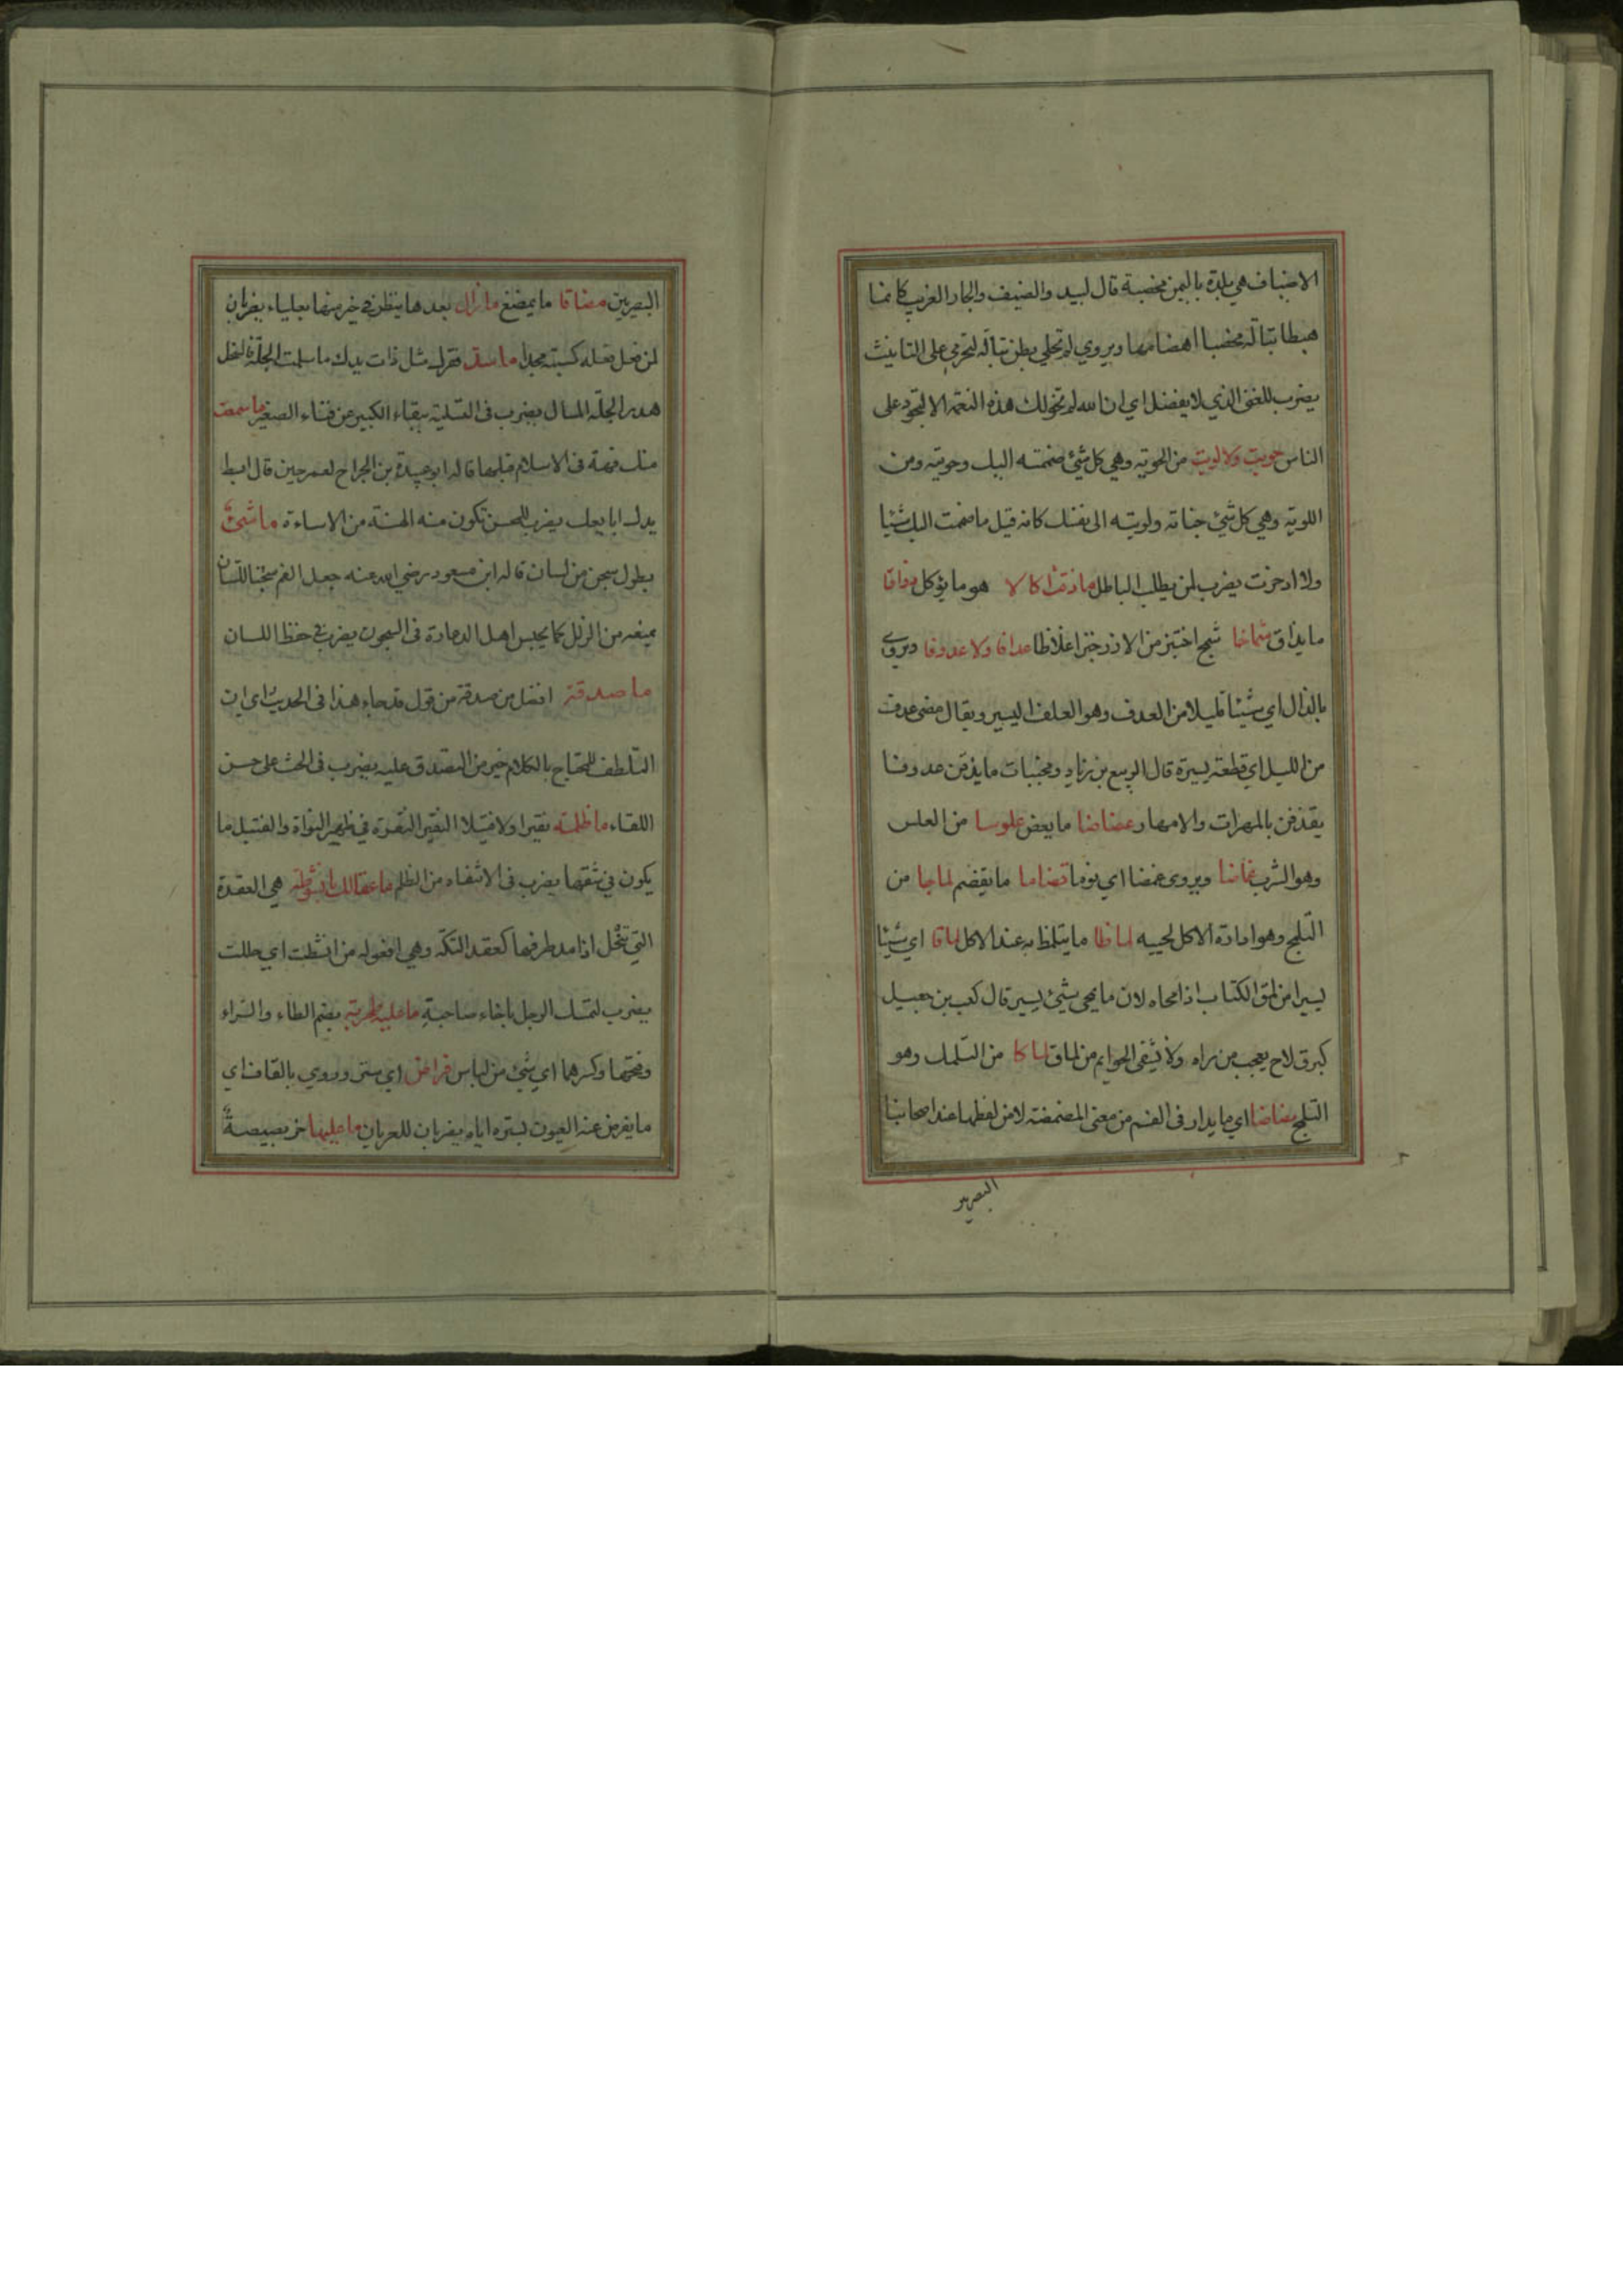 الاضياف هي بلدة باليمن مخصبة قال لبيد والضيف والجار الغريب كانما
هبطا تبالة مخصبا اهضامها ويروي لم تحلي بطن تبالة لتحرمي على التانيث
يضرب للغني الذي لا يفضل اي ان الله لم تخولك هذه النعمة الا لتجود على
الناس حويت ولا لويت من الحوية وهي كل شئ ضممته اليك وحويته ومن
اللوية وهي كل شئ خباته ولويته الى نفسك كانه قيل ما ضممت اليك شيئا
ولا ادخرت يضرب لمن يطلب الباطل ما ذقت اكالا هو ما يؤكل ذواقا
ما يذاق شماخا اغلاظا عدافا ولا عدوفا ويروى
بالذال اي شيئا قليلا من العدف وهو العلف اليسير ويقال مضى عدف
من الليل اي قطعة يسيرة قال الربيع بن زياد ومجنبات ما يذقن عدوفا
يقذفن بالمهرات والامهار عضاضا ما يعض علوسا من العلس
وهو الشرب غماضا ويروى غمضا اي نوما قضاما ما يقضم لماجا من
التلمج وهو ادارة الاكل لحييه لماظا ما يتلمظ به عند الاكل لماقا اي شيئا
يسيرا من لمق الكتاب اذا محاه لان ما يمحى بشئ يسير قال كعب بن جعيل
كبرق لاح يعجب من راه ولا يشفى الحوايم من لماق لماكا من التلمك وهو
التلمج مضاضا اي ما يدار في الفم من معنى المضمضة لا من لفظها عند اصحابنا
البصريين
البصريين مضاغا ما يمضغ مازال بعدها ينظر في خير منها بعلياء يضربان
لمن فعل فعله كسبته مجدا ماسد فقرك مثل ذات يدك ما سلمت الجلة فالنخل
هدر الجلة المسال يضرب في التسلية ببقاء الكبير عن فناء الصغير ما سمعت
منك فهة في الاسلام قبلها قاله ابو عبيدة بن الجراح لعمر حين قال ابسط
يدك ابايعك يضرب للمحسن تكون منه الهنة من الاساءة ما شئ
بطول سجن من لسان قاله ابن مسعود رضي الله عنه جعل الفم سجنا للسان
يمنعه من الزلل كما يحبس اهل الدعارة في السجون يضرب في حفظ اللسان
ما صدقة افضل من صدقة من قول قد جاء هذا في الحديث اي ان
التلطف للمحتاج بالكلام خير من التصدق عليه يضرب في الحث على حسن
اللقاء ما ظلمته نقيرا ولا فتيلا النقير النقرة في ظهر النواة والفتيل ما
يكون في شقها يضرب في الانتفاء من الظلم ما عقالك بانشوطة هي العقدة
التي تنحل اذا مد طرفها كعقد التكة وهي افعولة من انشطت اي حللت
يضرب لتمسك الرجل باخاء صاحبه ما عليه طحربة بضم الطاء والراء
وفتحها وكسرهما اي شئ من لباس فراض اي ستر وروي بالقاف اي
ما يقرض عنه العيون لستره اياه يضربان للعريان ما عليها خربصيصة